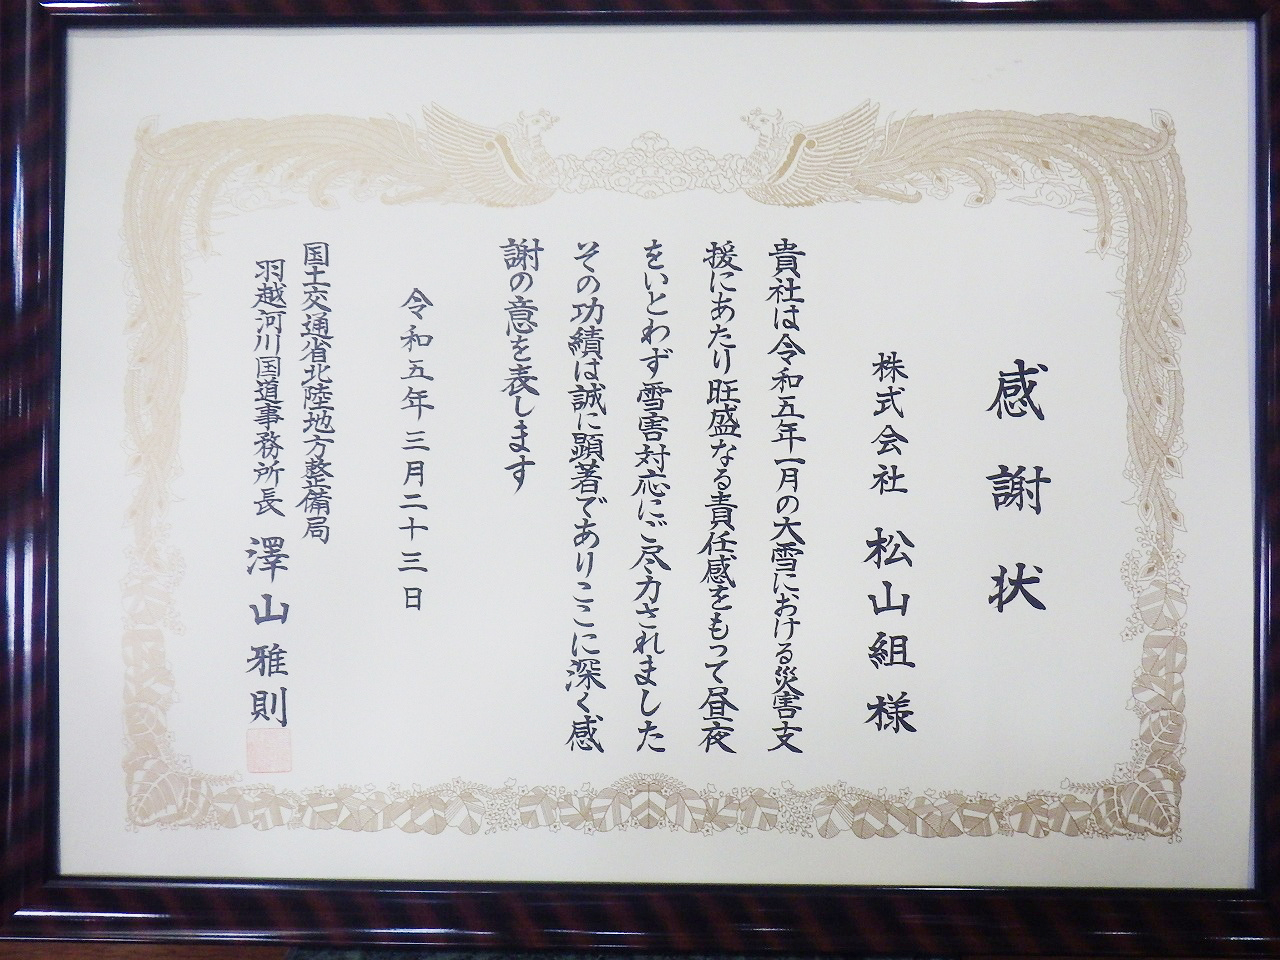 感謝状
株式会社 松山組 様
貴社は令和五年一月の大雪における災害支
援にあたり旺盛なる責任感をもって昼夜
をいとわず雪害対応にご尽力されました
その功績は誠に顕著でありここに深く感
謝の意を表します
令和五年三月二十三日
国土交通省北陸地方整備局
羽越河川国道事務所長 澤山雅則